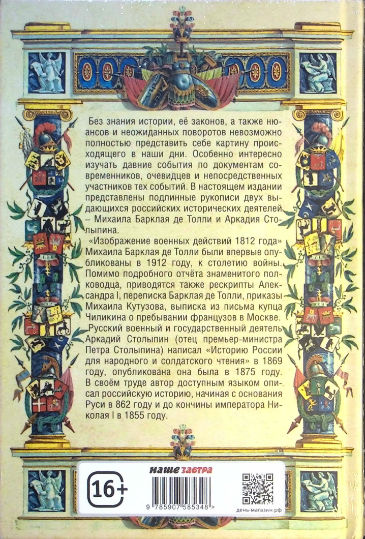 Без знания истории, её законов, а также ню-
ансов и неожиданных поворотов невозможно
полностью представить себе картину проис-
ходящего в наши дни. Особенно интересно
изучать давние события по документам со-
временников, очевидцев и непосредственных
участников тех событий. В настоящем издании
представлены подлинные рукописи двух вы-
дающихся российских исторических деятелей
– Михаила Барклая де Толли и Аркадия Сто-
лыпина.
«Изображение военных действий 1812 года»
Михаила Барклая де Толли были впервые опу-
бликованы в 1912 году, к столетию войны.
Помимо подробного отчёта знаменитого пол-
ководца, приводятся также рескрипты Алек-
сандра I, переписка Барклая де Толли, приказы
Михаила Кутузова, выписка из письма купца
Чиликина о пребывании французов в Москве.
Русский военный и государственный деятель
Аркадий Столыпин (отец премьер-министра
Петра Столыпина) написал «Историю России
для народного и солдатского чтения» в 1869
году, опубликована она была в 1875 году.
В своём труде автор доступным языком опи-
сал российскую историю, начиная с основания
Руси в 862 году и до кончины императора Ни-
колая I в 1855 году.
16+
наше завтра
9 785907 585348 >
день-магазин.рф